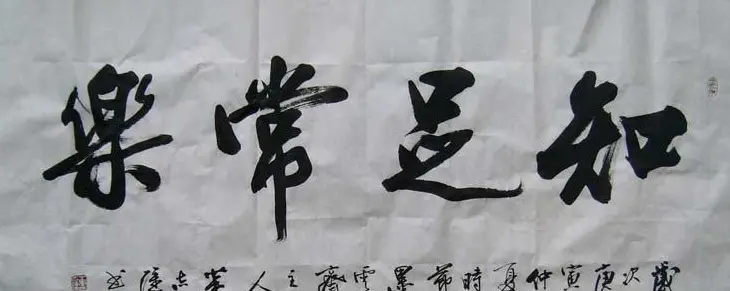 知足常樂
歲次庚寅仲夏時節墨雲齋主人